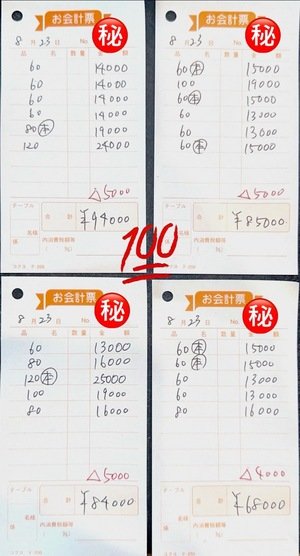 お会計票
㊙
8月23日 No.
品名 数量 金額
60 14000
60 14000
60 14000
60 14000
80 ㊍ 19000
120 24000
△5000
テーブル 合計 ¥94000
名様
係 内消費税額等( %)
コクヨ テ-259
お会計票
㊙
8月23日 No.
品名 数量 額
60 ㊍ 15000
100 19000
60 ㊍ 15000
60 13000
60 13000
60 ㊍ 15000
△5000
テーブル 合計 ¥85000
名様
係 内消費税額等( %)
コクヨ テ-259
100
お会計票
㊙
8月23日 No.
品名 数量 金額
60 13000
80 16000
120 ㊍ 25000
100 19000
80 16000
△5000
テーブル 合計 ¥84000
名様
係 内消費税額等( %)
コクヨ テ-259
お会計票
㊙
8月23日 No.
品名 数量 額
60 ㊍ 15000
60 ㊍ 15000
60 13000
60 13000
80 16000
△4000
テーブル 合計 ¥68000
名様
係 内消費税額等( %)
コクヨ テ-259